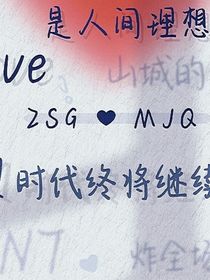 是人间理想
ve
山城的
ZSG ♥ MJQ
时代终将继续
NT.
炸全场